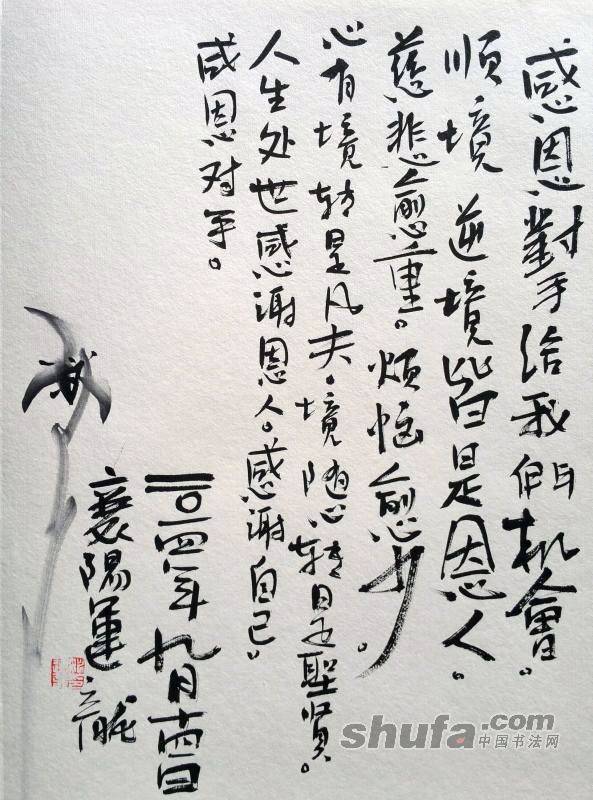 感恩對手给我們机會。
順境逆境皆是恩人。
慈悲愈重。烦恼愈少。
心有境转是凡夫。境随心转是聖賢。
人生处世感谢恩人。感谢自己。
感恩对手。
二〇一四年九月十四日
襄陽運龍
shufa.com
中国书法网